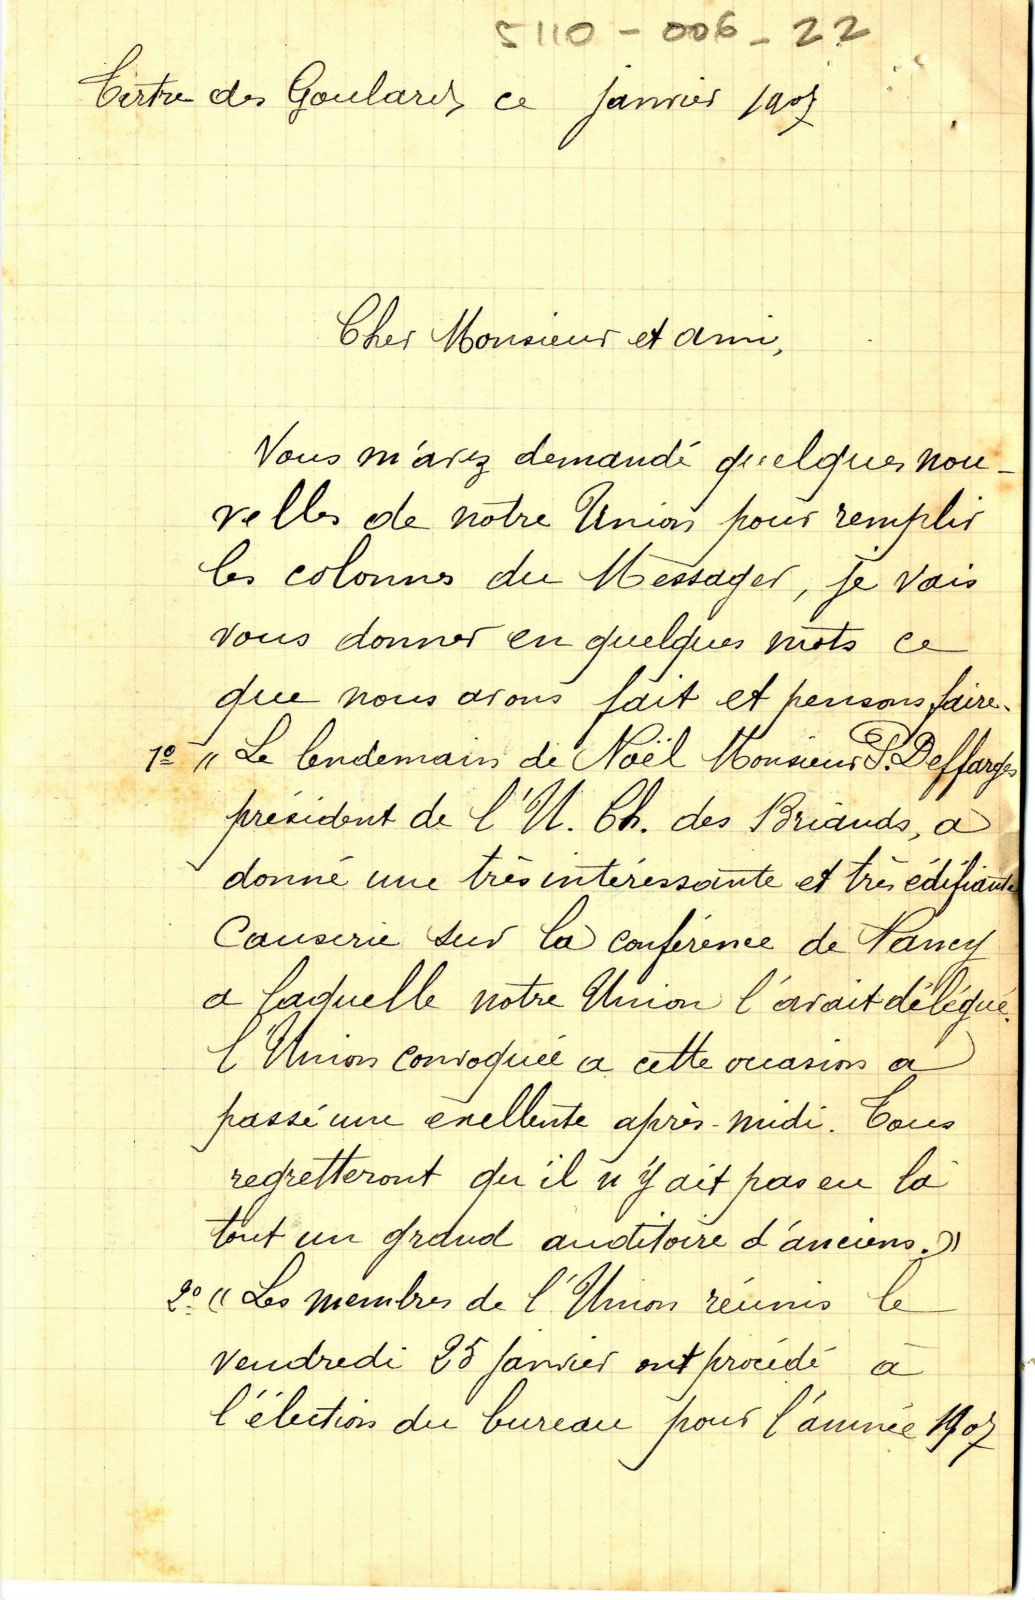 5110-006-22
Tertre des Goulards ce janvier 1907
Cher Monsieur et ami,
Vous m'avez demandé quelques nou-
velles de notre Union pour remplir
les colonnes du Messager, je vais
vous donner en quelques mots ce
que nous avons fait et pensons faire.
1º " Le lendemain de Noël Monsieur P. Deffarges
président de l'U. Ch. des Briands, a
donné une très intéressante et très édifiante
Causerie sur la conférence de Nancy
a laquelle notre Union l'avait délégué.
l'Union convoquée a cette occasion a
passé une exellente après-midi. Tous
regretteront qu'il n'y ait pas eu là
tout un grand auditoire d'anciens. "
2º " Les membres de l'Union réunis le
vendredi 25 janvier ont procédé à
l'élection du bureau pour l'année 1907